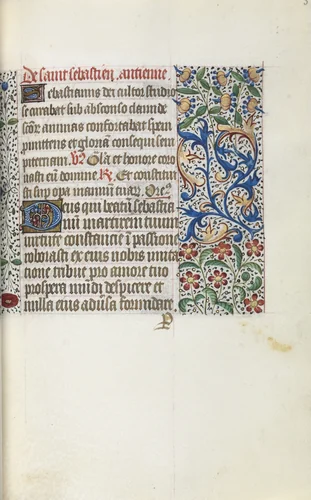 De saint sebastien. antienne
Sebastianus dei cultor studio
se curabat sub absconso clamide
scor animas confortabat spem
punitens et gloriam consequi sem
piternam. V. Gla et honore coro
nasti eum domine R. Et constituisti
sti sup opa manuum tuar. Ore
Deus qui beatum sebastia
num martirem tuum
virtute constancie in passione
roborasti ex eius nobis imita
tione tribue pro amore tuo
prospera mundi despicere et
nulla eius adversa formidare
P